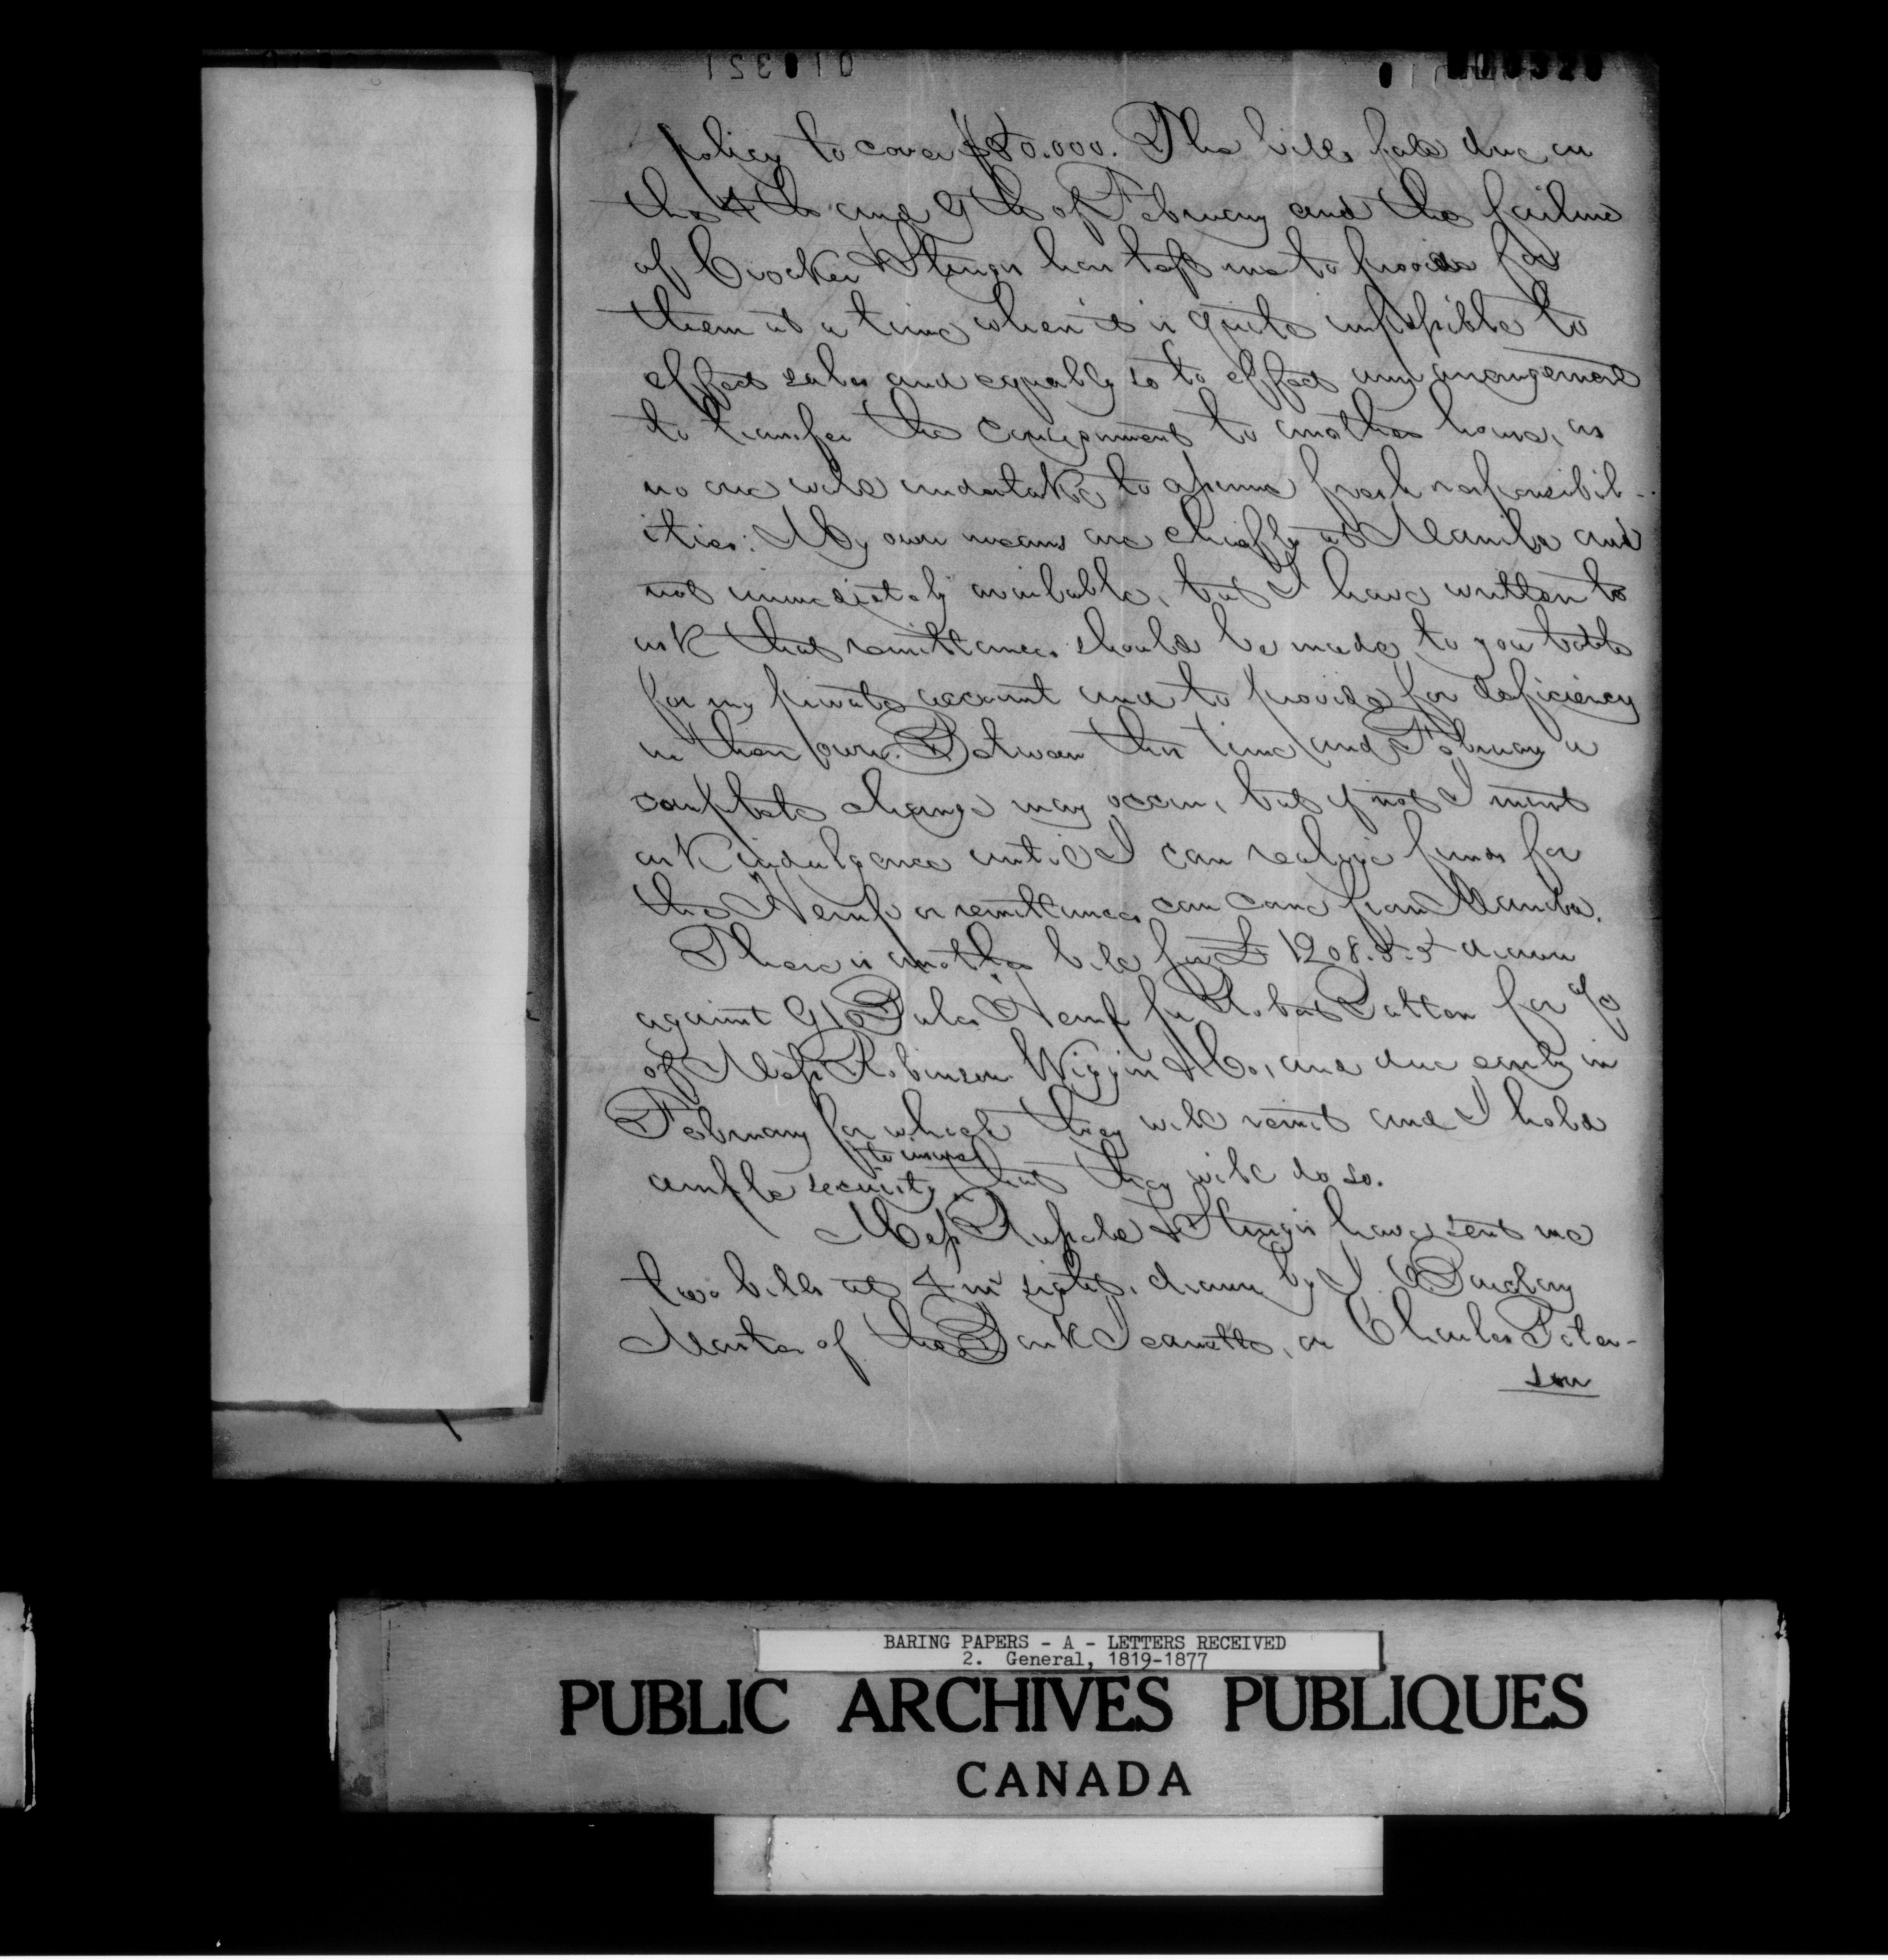 policy to cover $80.000. The bills fall due on
the 4th and 9th of February and the failure
of Crocker & Sturgis has left me to provide for
them at a time when it is quite impossible to
effect sales and equally so to effect any arrangement
to transfer the consignment to another house, as
no one will undertake to assume fresh responsibil-
ities: My own means are chiefly at Manila and
not immediately available, but I have written to
ask that remittances should be made to you both
for my private account and to provide for deficiency
in their own. Between this time and February a
complete change may occur, but if not I must
ask indulgence until I can realize funds for
the Hemp or remittances can come from Manila.
There is another bill for £ 1208.5.5 drawn
against 910 Bales Hemp per Robert Patten for a/c
of Mess Robinson Wiggin & Co, and due early in
February for which they will remit and I hold
to insure
ample security that they will do so.
Mess Russell & Sturgis have sent me
two bills at 4 m sight, drawn by J.
Master of the Bark Jeanette, on Charles Peter-
son
010321
BARING PAPERS - A - LETTERS RECEIVED
2. General, 1819-1877
PUBLIC ARCHIVES PUBLIQUES
CANADA